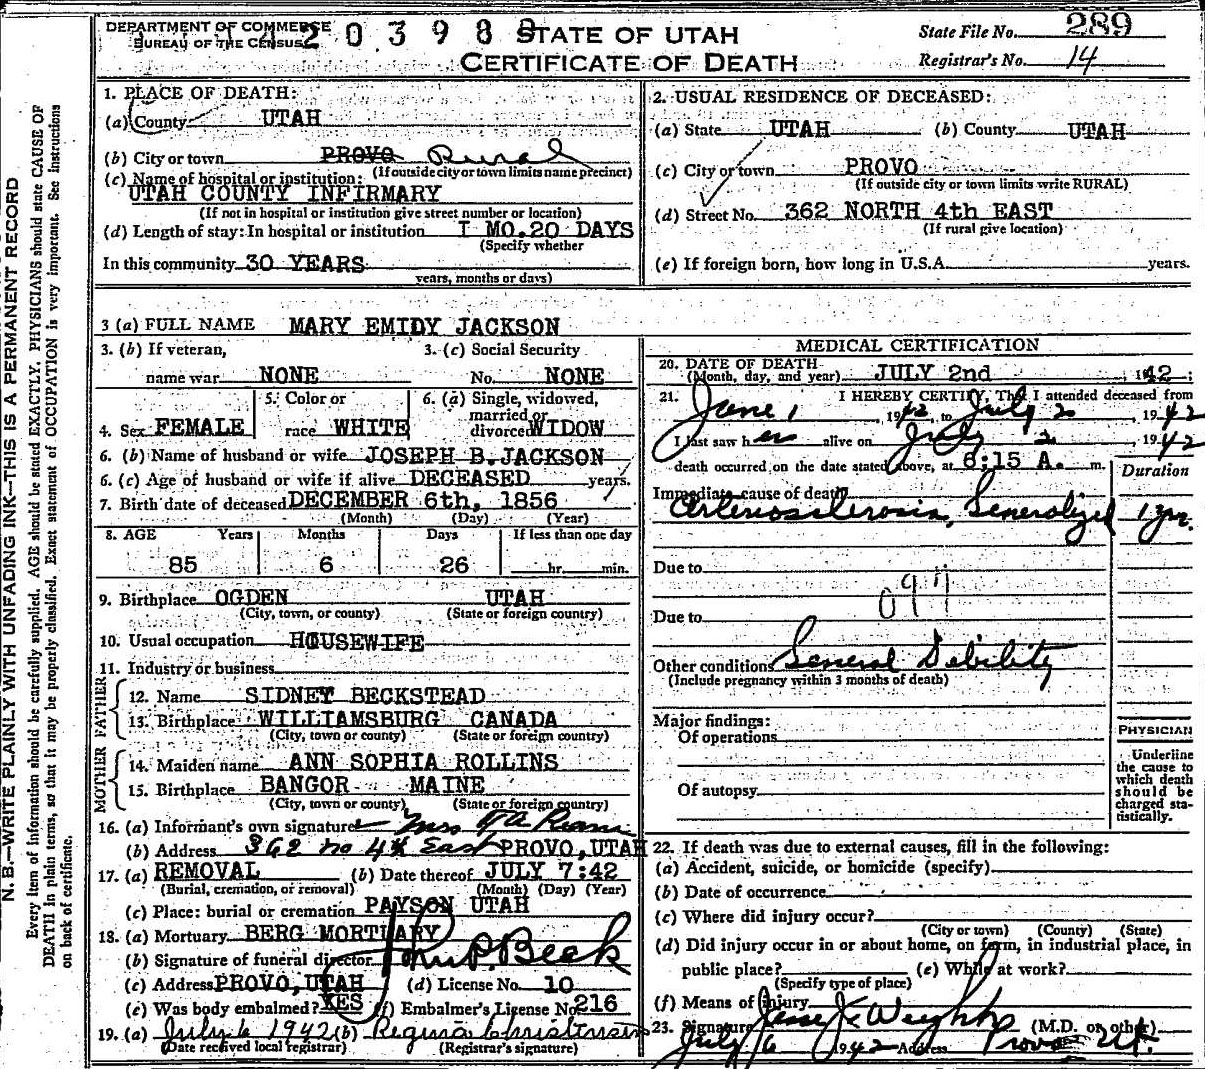 DEPARTMENT OF COMMERCE
BUREAU OF THE CENSUS
20398
STATE OF UTAH
CERTIFICATE OF DEATH
State File No. 289
Registrar's No. 14
N. B.—WRITE PLAINLY WITH UNFADING INK—THIS IS A PERMANENT RECORD
Every item of information should be carefully supplied. AGE should be stated EXACTLY. PHYSICIANS should state CAUSE OF
DEATH in plain terms, so that it may be properly classified. Exact statement of OCCUPATION is very important. See instructions
on back of certificate.
1. PLACE OF DEATH:
(a) County UTAH
(b) City or town PROVO Rural
(If outside city or town limits name precinct)
(c) Name of hospital or institution:
UTAH COUNTY INFIRMARY
(If not in hospital or institution give street number or location)
(d) Length of stay: In hospital or institution 1 MO. 20 DAYS
(Specify whether
In this community 30 YEARS
years, months or days)
2. USUAL RESIDENCE OF DECEASED:
(a) State UTAH (b) County UTAH
(c) City or town PROVO
(If outside city or town limits write RURAL)
(d) Street No. 362 NORTH 4th EAST
(If rural give location)
(e) If foreign born, how long in U.S.A. years.
3 (a) FULL NAME MARY EMIDY JACKSON
3. (b) If veteran, 3. (c) Social Security
name war NONE No. NONE
4. Sex FEMALE
5. Color or
race WHITE
6. (a) Single, widowed,
married or
divorced WIDOW
6. (b) Name of husband or wife JOSEPH B. JACKSON
6. (c) Age of husband or wife if alive DECEASED years.
7. Birth date of deceased DECEMBER 6th, 1856
(Month) (Day) (Year)
8. AGE Years Months Days If less than one day
85 6 26 hr. min.
9. Birthplace OGDEN UTAH
(City, town, or county) (State or foreign country)
10. Usual occupation HOUSEWIFE
11. Industry or business
FATHER
12. Name SIDNEY BECKSTEAD
13. Birthplace WILLIAMSBURG CANADA
(City, town or county) (State or foreign country)
MOTHER
14. Maiden name ANN SOPHIA ROLLINS
15. Birthplace BANGOR MAINE
(City, town or county) (State or foreign country)
16. (a) Informant's own signature Mrs
(b) Address 362 no 4th East PROVO, UTAH
17. (a) REMOVAL (b) Date thereof JULY 7:42
(Burial, cremation, or removal) (Month) (Day) (Year)
(c) Place: burial or cremation PAYSON UTAH
18. (a) Mortuary BERG MORTUARY
(b) Signature of funeral director
(c) Address PROVO, UTAH (d) License No. 10
(e) Was body embalmed? YES (f) Embalmer's License No. 216
19. (a) July 6 1942 (b) Regina Christensen
(Date received local registrar) (Registrar's signature)
MEDICAL CERTIFICATION
20. DATE OF DEATH
(Month, day, and year) JULY 2nd 1942;
21. I HEREBY CERTIFY, That I attended deceased from
June 1, 1942, to July 2, 1942
I last saw her alive on July 2 1942
death occurred on the date stated above, at 6:15 A. m.
Duration
Immediate cause of death
Arteriosclerosis, Generalized 1 yr.
Due to
097
Due to
Other conditions General Debility
(Include pregnancy within 3 months of death)
Major findings:
Of operations
Of autopsy
PHYSICIAN
Underline
the cause to
which death
should be
charged sta-
tistically.
22. If death was due to external causes, fill in the following:
(a) Accident, suicide, or homicide (specify)
(b) Date of occurrence
(c) Where did injury occur?
(City or town) (County) (State)
(d) Did injury occur in or about home, on farm, in industrial place, in
public place? (e) While at work?
(Specify type of place)
(f) Means of Injury
23. Signature (M.D. or other)
July 6 1942 Address Provo Ut.